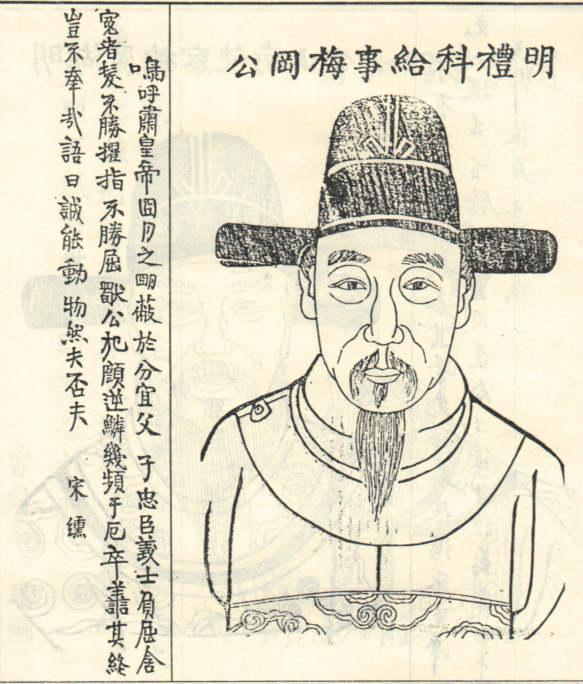 明禮科給事梅岡公
嗚呼肅皇帝日月之朙蔽於分宜父子忠臣義士負屈含
寃者髮不勝擢指不勝屈歐公犯顏逆鱗幾頻于厄卒譱其終
豈不幸㦲語曰誠能動物然夫否夫 宋纁